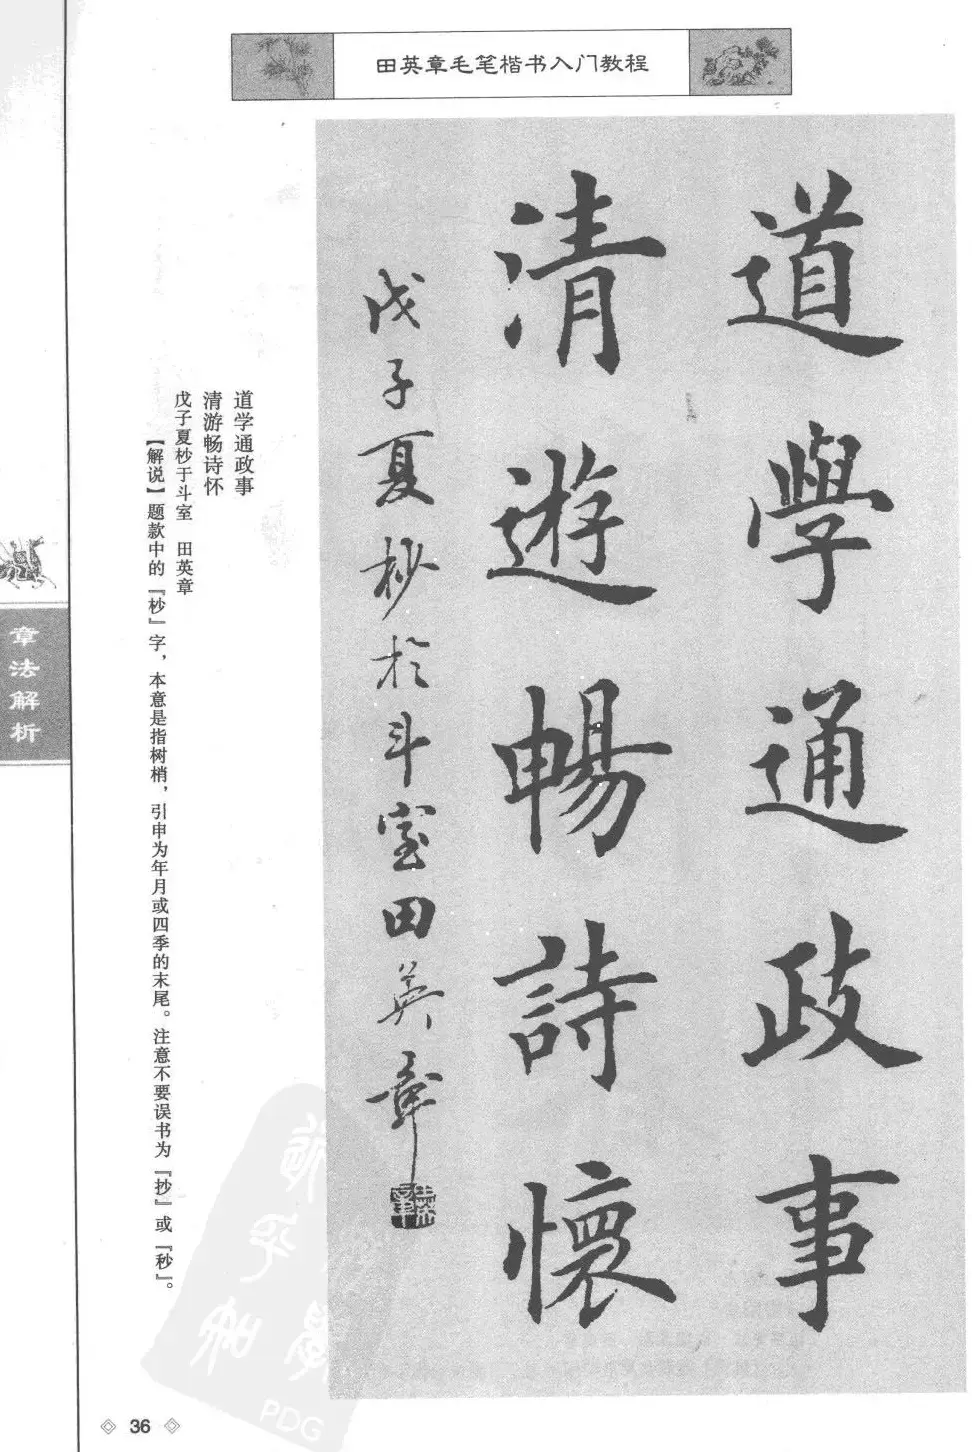 田英章毛笔楷书入门教程
道學通政事
清遊暢詩懷
戊子夏杪於斗室田英章
道学通政事
清游畅诗怀
戊子夏杪于斗室 田英章
【解说】题款中的『杪』字，本意是指树梢，引申为年月或四季的末尾。注意不要误书为『抄』或『秒』。
章法解析
36
PDG